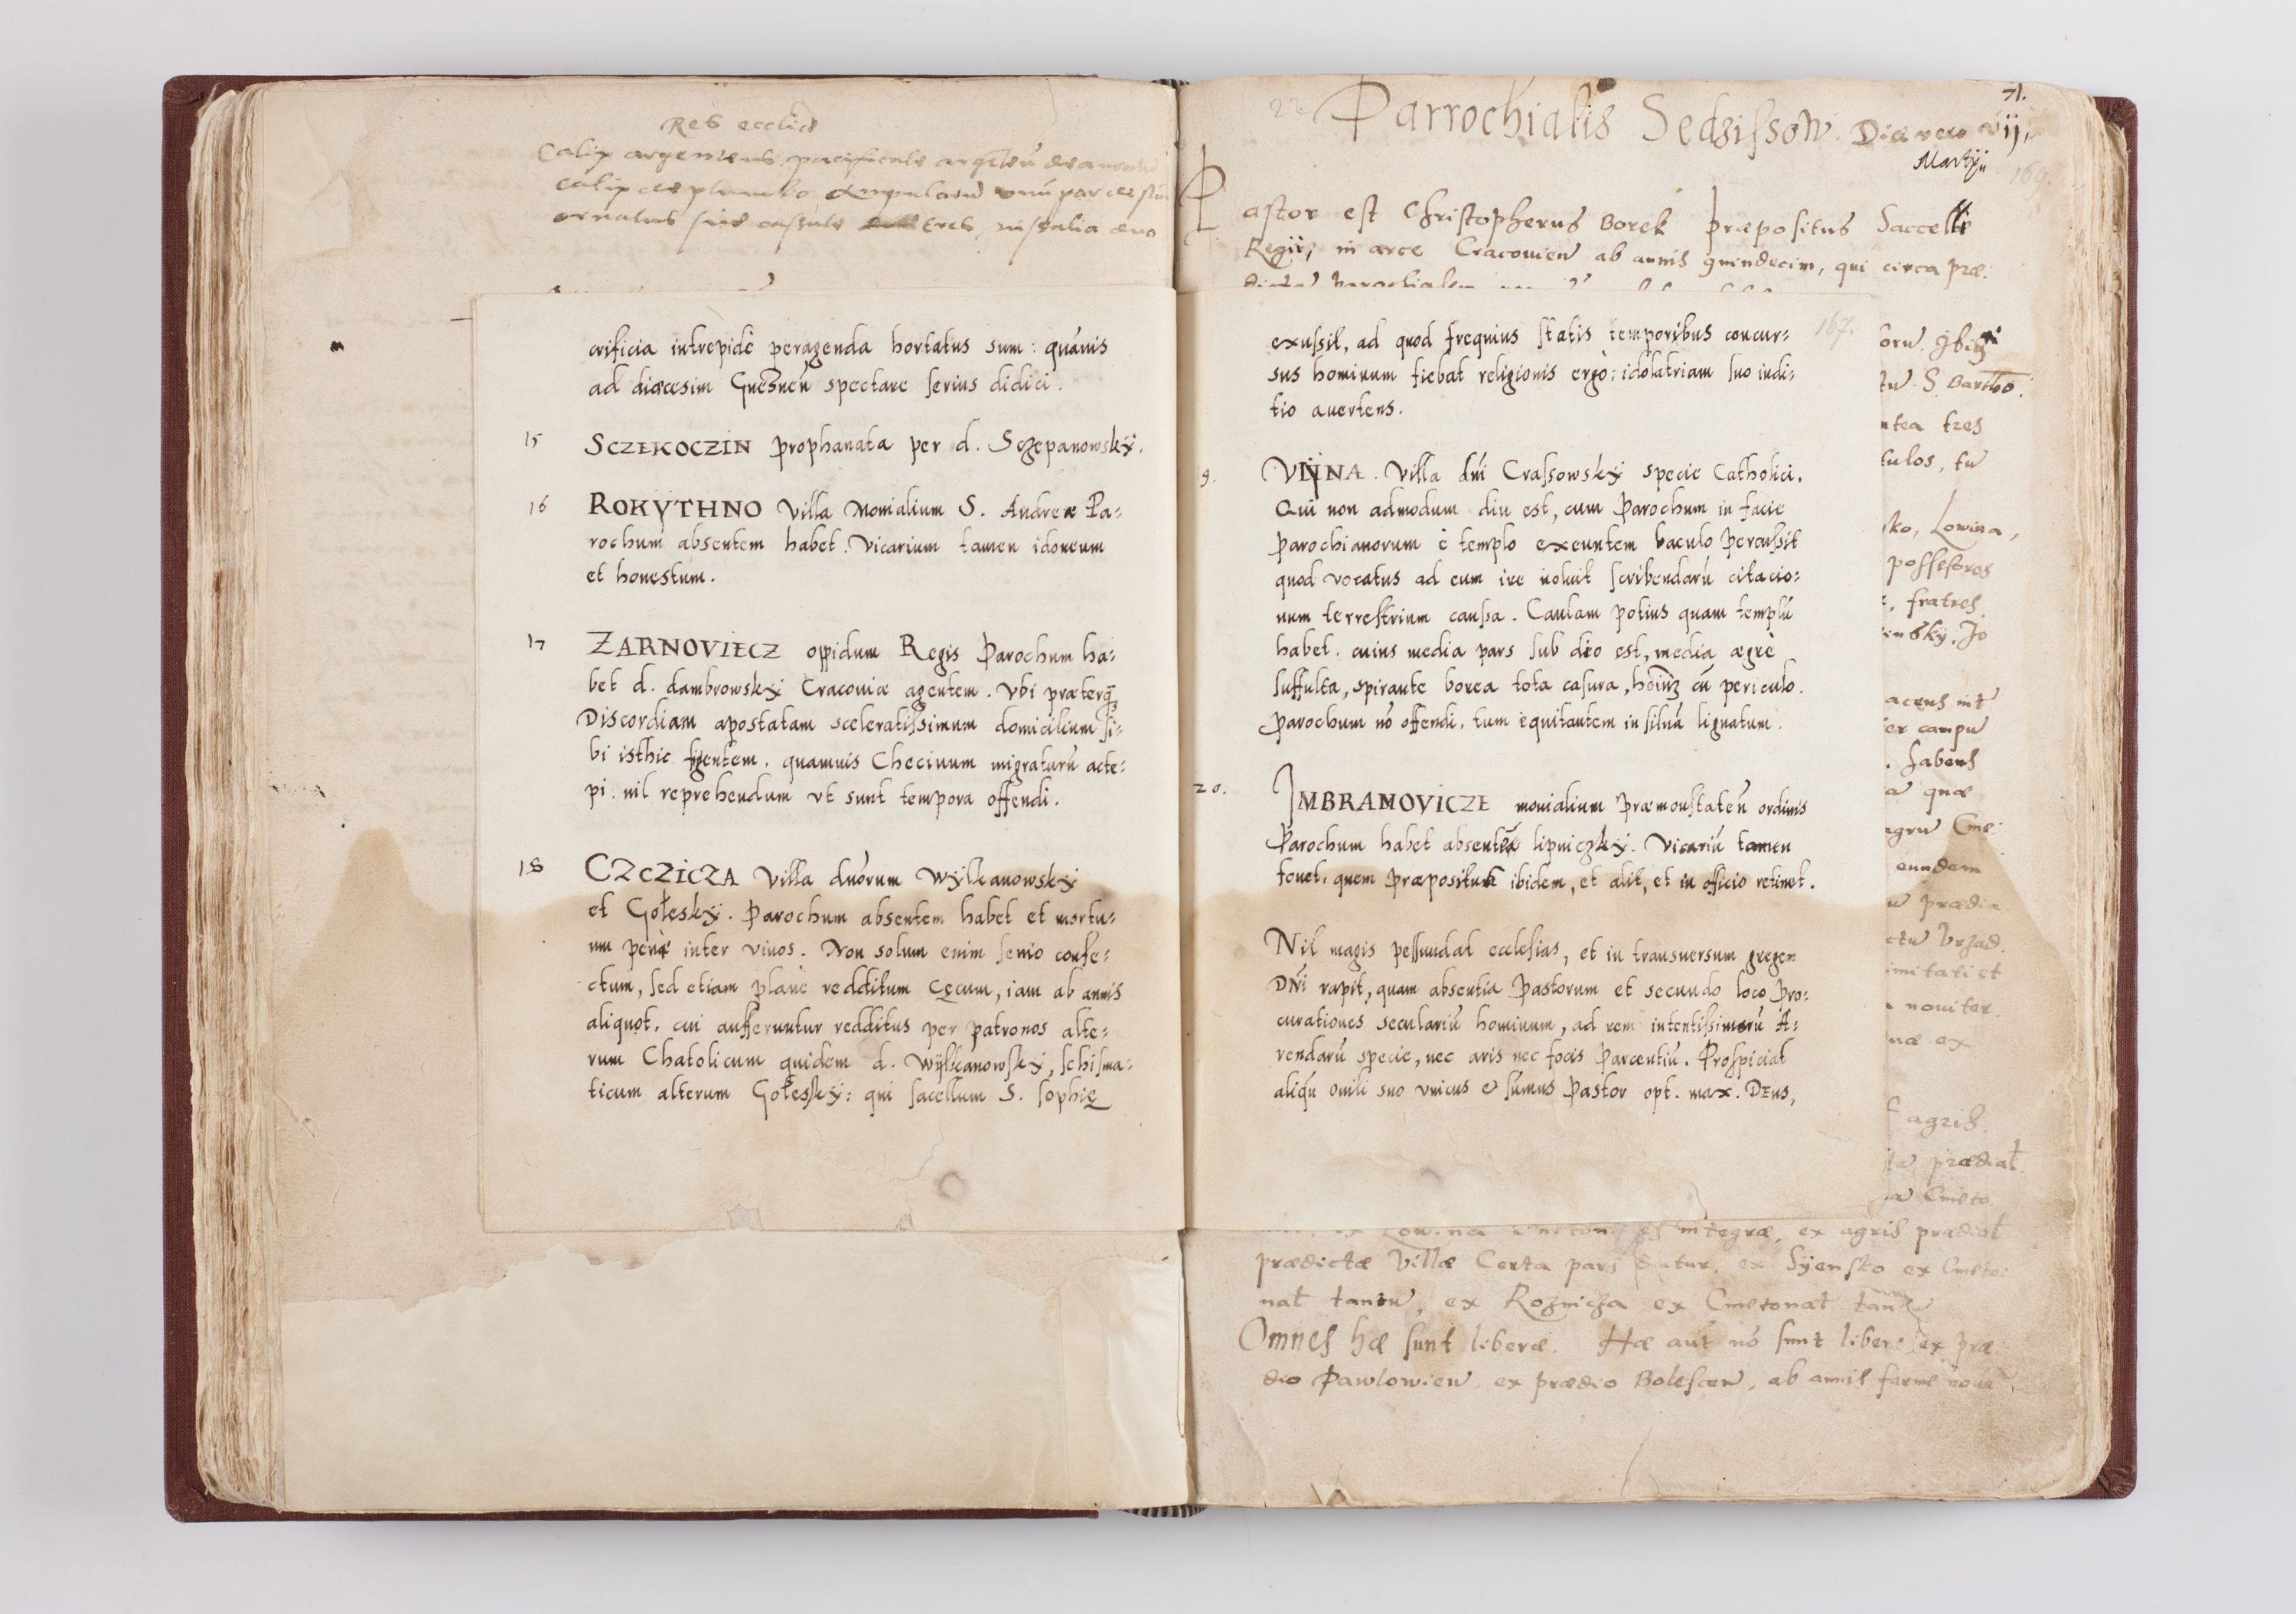 Res ecclie
Calix argenteus, pacificale argẽteũ
calix de plumbo
ornatus sive cassule tres, missalia duo
crificia intrepidè peragenda hortatus sum: quãuis
ad diæcesim Gnesneñ spectare serius didici.
15 SCZEKOCZIN prophanata per d. Sczepanowskÿ.
16 ROKYTHNO villa Monialium S. Andreæ Pa:
rochum absentem habet. Vicarium tamen idoneum
et honestum.
17 ZARNOVIECZ oppidum Regis Parochum ha:
bet d. dambrowskÿ Cracoviæ agentem. Vbi præterq̃
Discordiam apostatam sceleratissimum domicilium si:
bi isthic figentem. quamuis Checinum migraturũ acce:
pi. nil reprehendum vt sunt tempora offendi.
18 CZCZICZA villa duorum Wÿlkanowskÿ
et Gołeskÿ. Parochum absentem habet et mortu:
um penè inter viuos. Non solum enim senio confe:
ctum, sed etiam planè redditum cęcum, iam ab annis
aliquot. cui aufferuntur redditus per patronos alte:
rum Chatolicum quidem d. Wÿlkanowskÿ, schisma:
ticum alterum Gołeskÿ: qui sacellum S. sophię
71.
Parrochialis Sedzissow. Die vero vij,
Martij
169.
Pastor est Christopherus Borek præpositus Saccelli
Regij, in arce Cracouieñ ab annis quindecim, qui circa præ:
167.
exussit, ad quod frequius statis temporibus concur:
sus hominum fiebat religionis ergò: idolatriam suo indi:
tio auertens.
9. VIJNA. Villa dñi Crassowskÿ specie Catholici.
Qui non admodum diu est, cum Parochum in facie
Parochianorum è templo exeuntem baculo percussit
quod vocatus ad eum ire noluit scribendarũ citacio:
num terrestrium caussa. Caulam potius quam templũ
habet. cuius media pars sub dio est, media ægrè
suffulta, spirante borea tota casura, hoĩũz cũ periculo.
Parochum nõ offendi. tum equitantem in siluã lignatum.
20. IMBRAMOVICZE monialium Præmonstateñ ordinis
Parochum habet absentẽ lipniczkÿ. Vicariũ tamen
fouet, quem Præpositus ibidem, et alit, et in officio retinet.
Nil magis pessundat ecclesias, et in transuersum gregem
Dñi rapit, quam absentia Pastorum et secundo loco Pro:
curationes seculariũ hominum, ad rem intentissimorũ A:
rendarũ specie, nec aris nec focis Parcentiũ. Prospiciat
aliqũ ouili suo vnicus et sũmus Pastor opt. max. Deus,
S. Bartho.
tres
tulos, tũ
Lowina,
possessores
fratres
acens int
campũ
habens
quæ
agrũ
eundem
prædia
noviter
ex
agris
prædiat
integræ, ex agris prædiat
prædictæ villæ Certa pars datur, ex Syensko ex Cmeto:
nat tantũ, ex Roznicza ex Cmetonat tantũ
Omnes hæ sunt liberæ. Hæ aũt nõ sunt liberæ ex præ:
dio Pawlowieñ, ex prædio Bolesceñ, ab annis ferme